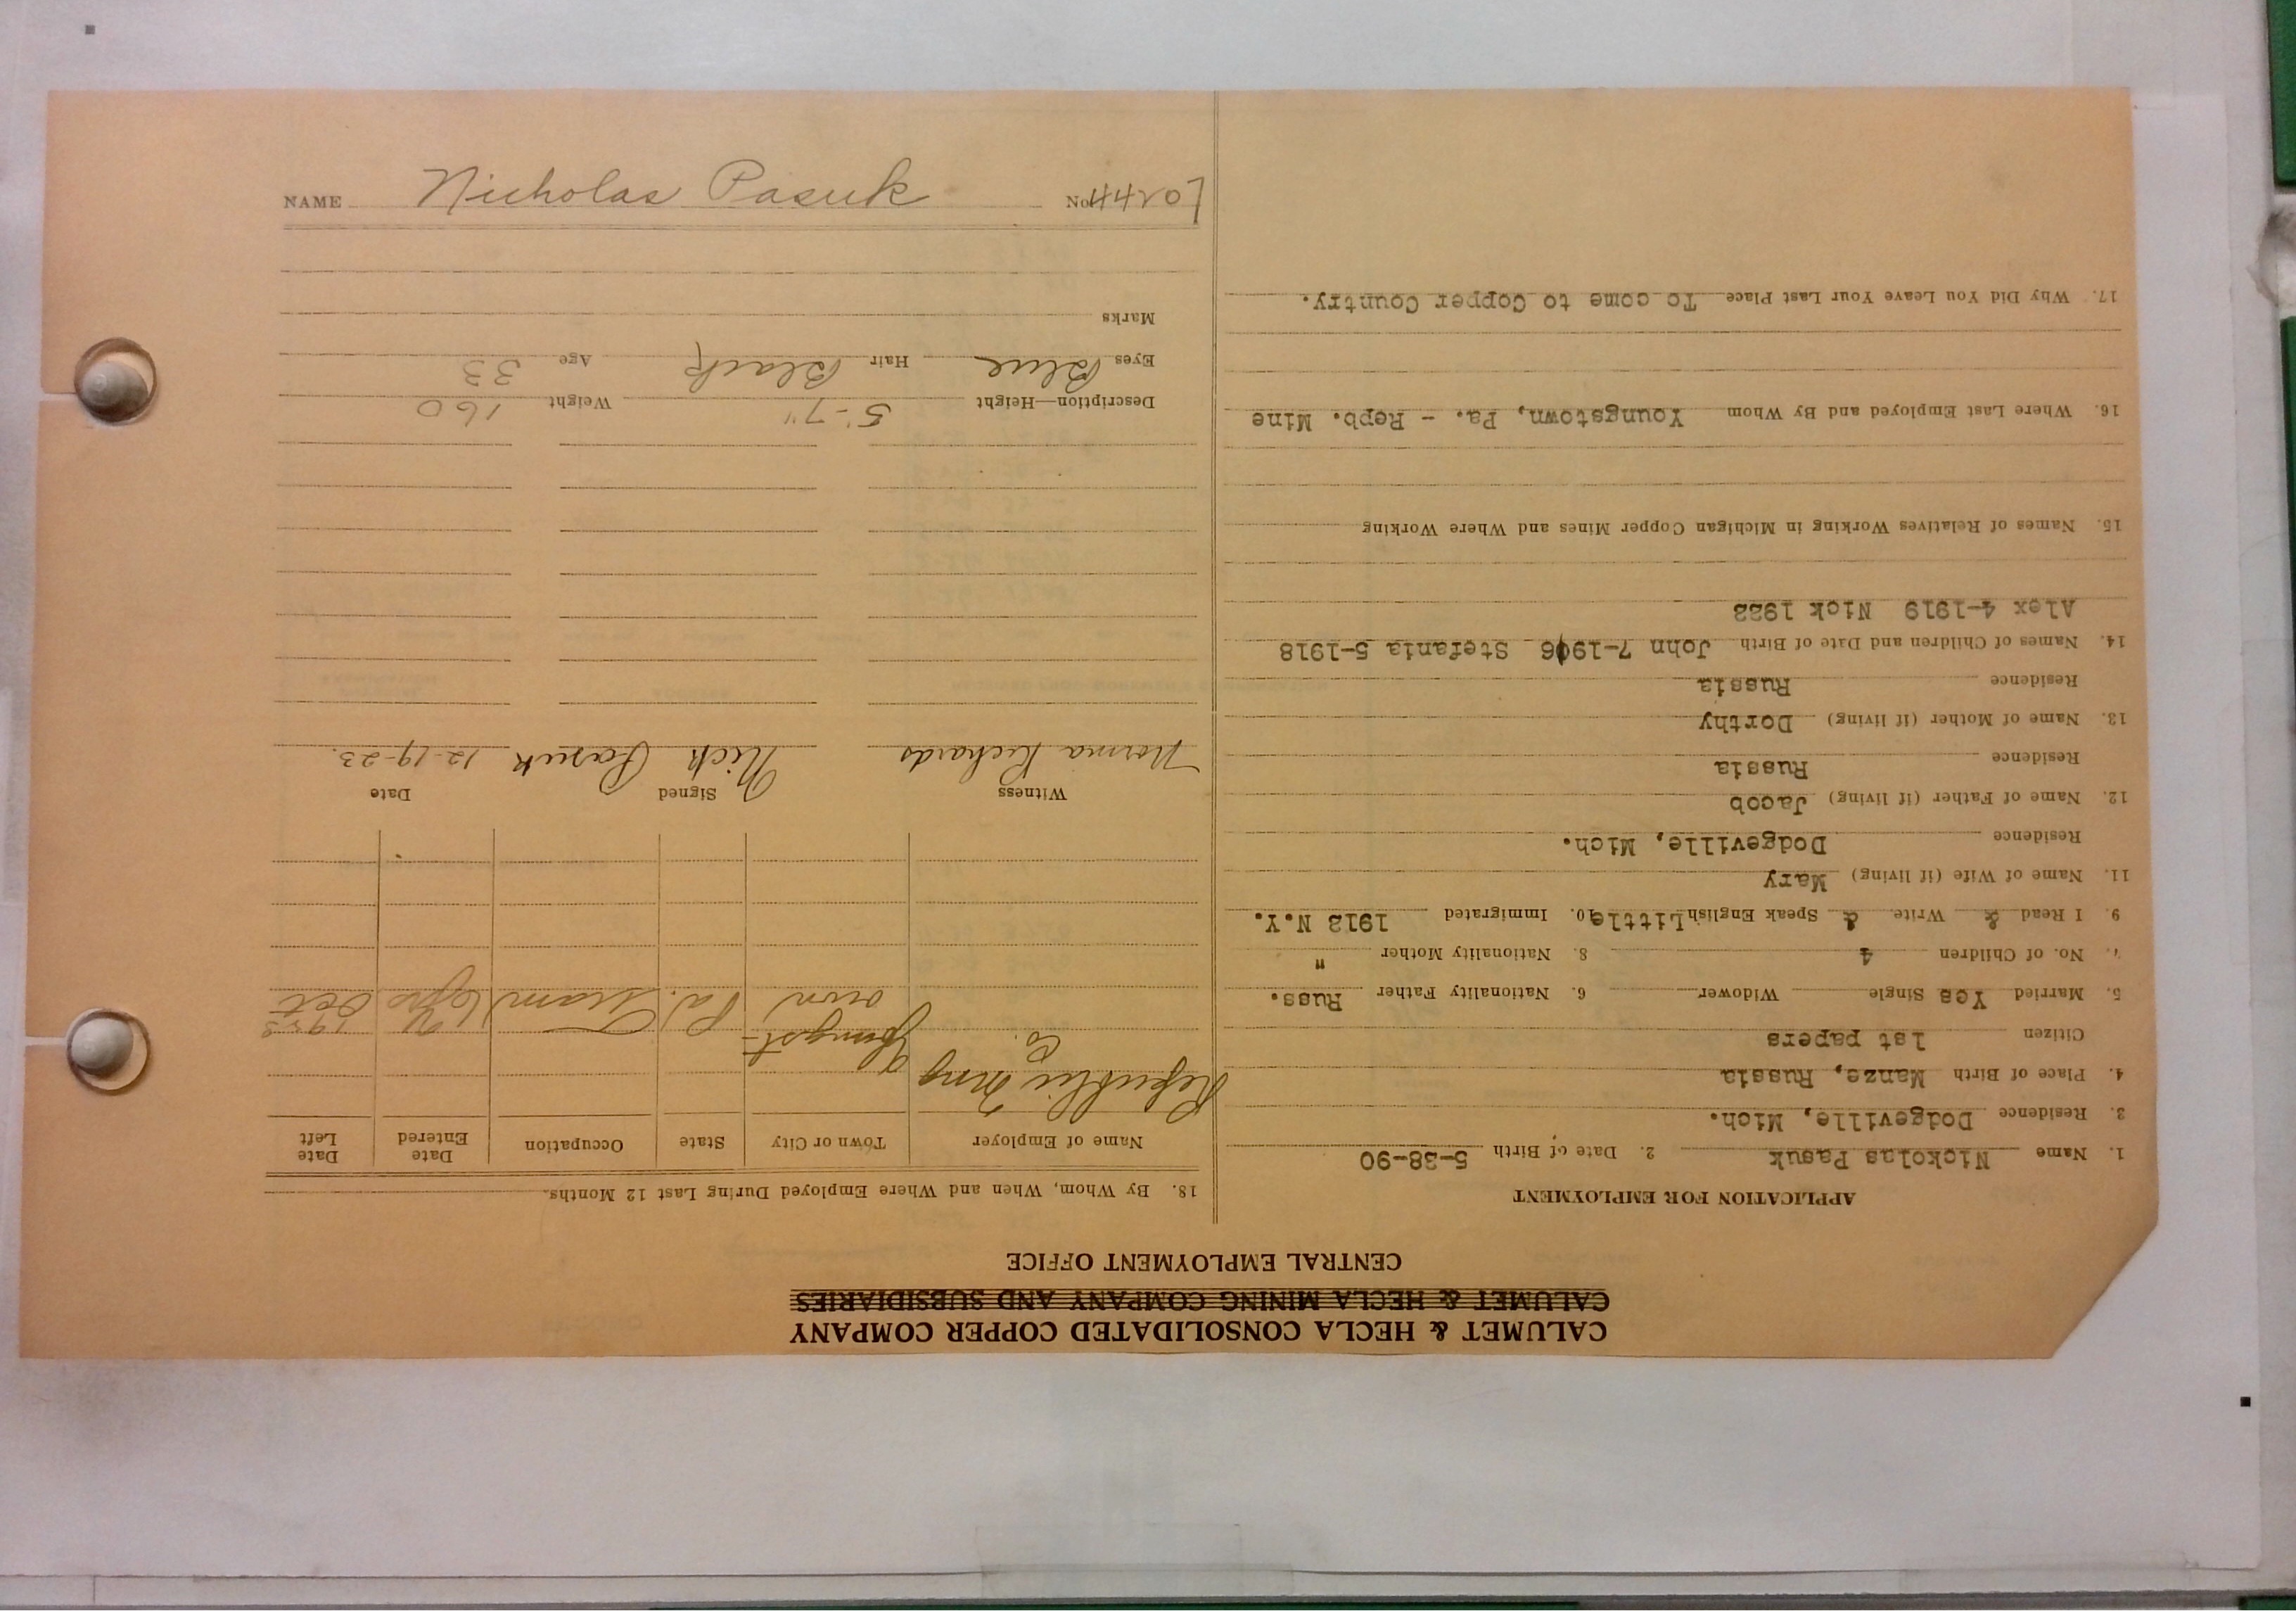 CALUMET & HECLA CONSOLIDATED COPPER COMPANY
CALUMET & HECLA MINING COMPANY AND SUBSIDIARIES
CENTRAL EMPLOYMENT OFFICE
APPLICATION FOR EMPLOYMENT
1. Name Nickolas Pasuk 2. Date of Birth 5-28-90
3. Residence Dodgeville, Mich.
4. Place of Birth Manze, Russia
Citizen 1st papers
5. Married Yes Single Widower 6. Nationality Father Russ.
7. No. of Children 4 8. Nationality Mother "
9. I Read & Write & Speak English Little 10. Immigrated 1912 N.Y.
11. Name of Wife (if living) Mary
Residence Dodgeville, Mich.
12. Name of Father (if living) Jacob
Residence Russia
13. Name of Mother (if living) Dorthy
Residence Russia
14. Names of Children and Date of Birth John 7-1916 Stefania 5-1918
Alex 4-1919 Nick 1922
15. Names of Relatives Working in Michigan Copper Mines and Where Working
16. Where Last Employed and By Whom Youngstown, Pa. - Repb. Mine
17. Why Did You Leave Your Last Place To come to Copper Country.
18. By Whom, When and Where Employed During Last 12 Months
Name of Employer Town or City State Occupation Date Entered Date Left
Republic Mng Co. Youngstown Pa. Tram Oct
Witness Signed Date
Norma Richards Nick Pasuk 12-19-23.
Description—Height 5'-7" Weight 160
Eyes Blue Hair Black Age 33
Marks
NAME Nicholas Pasuk No.